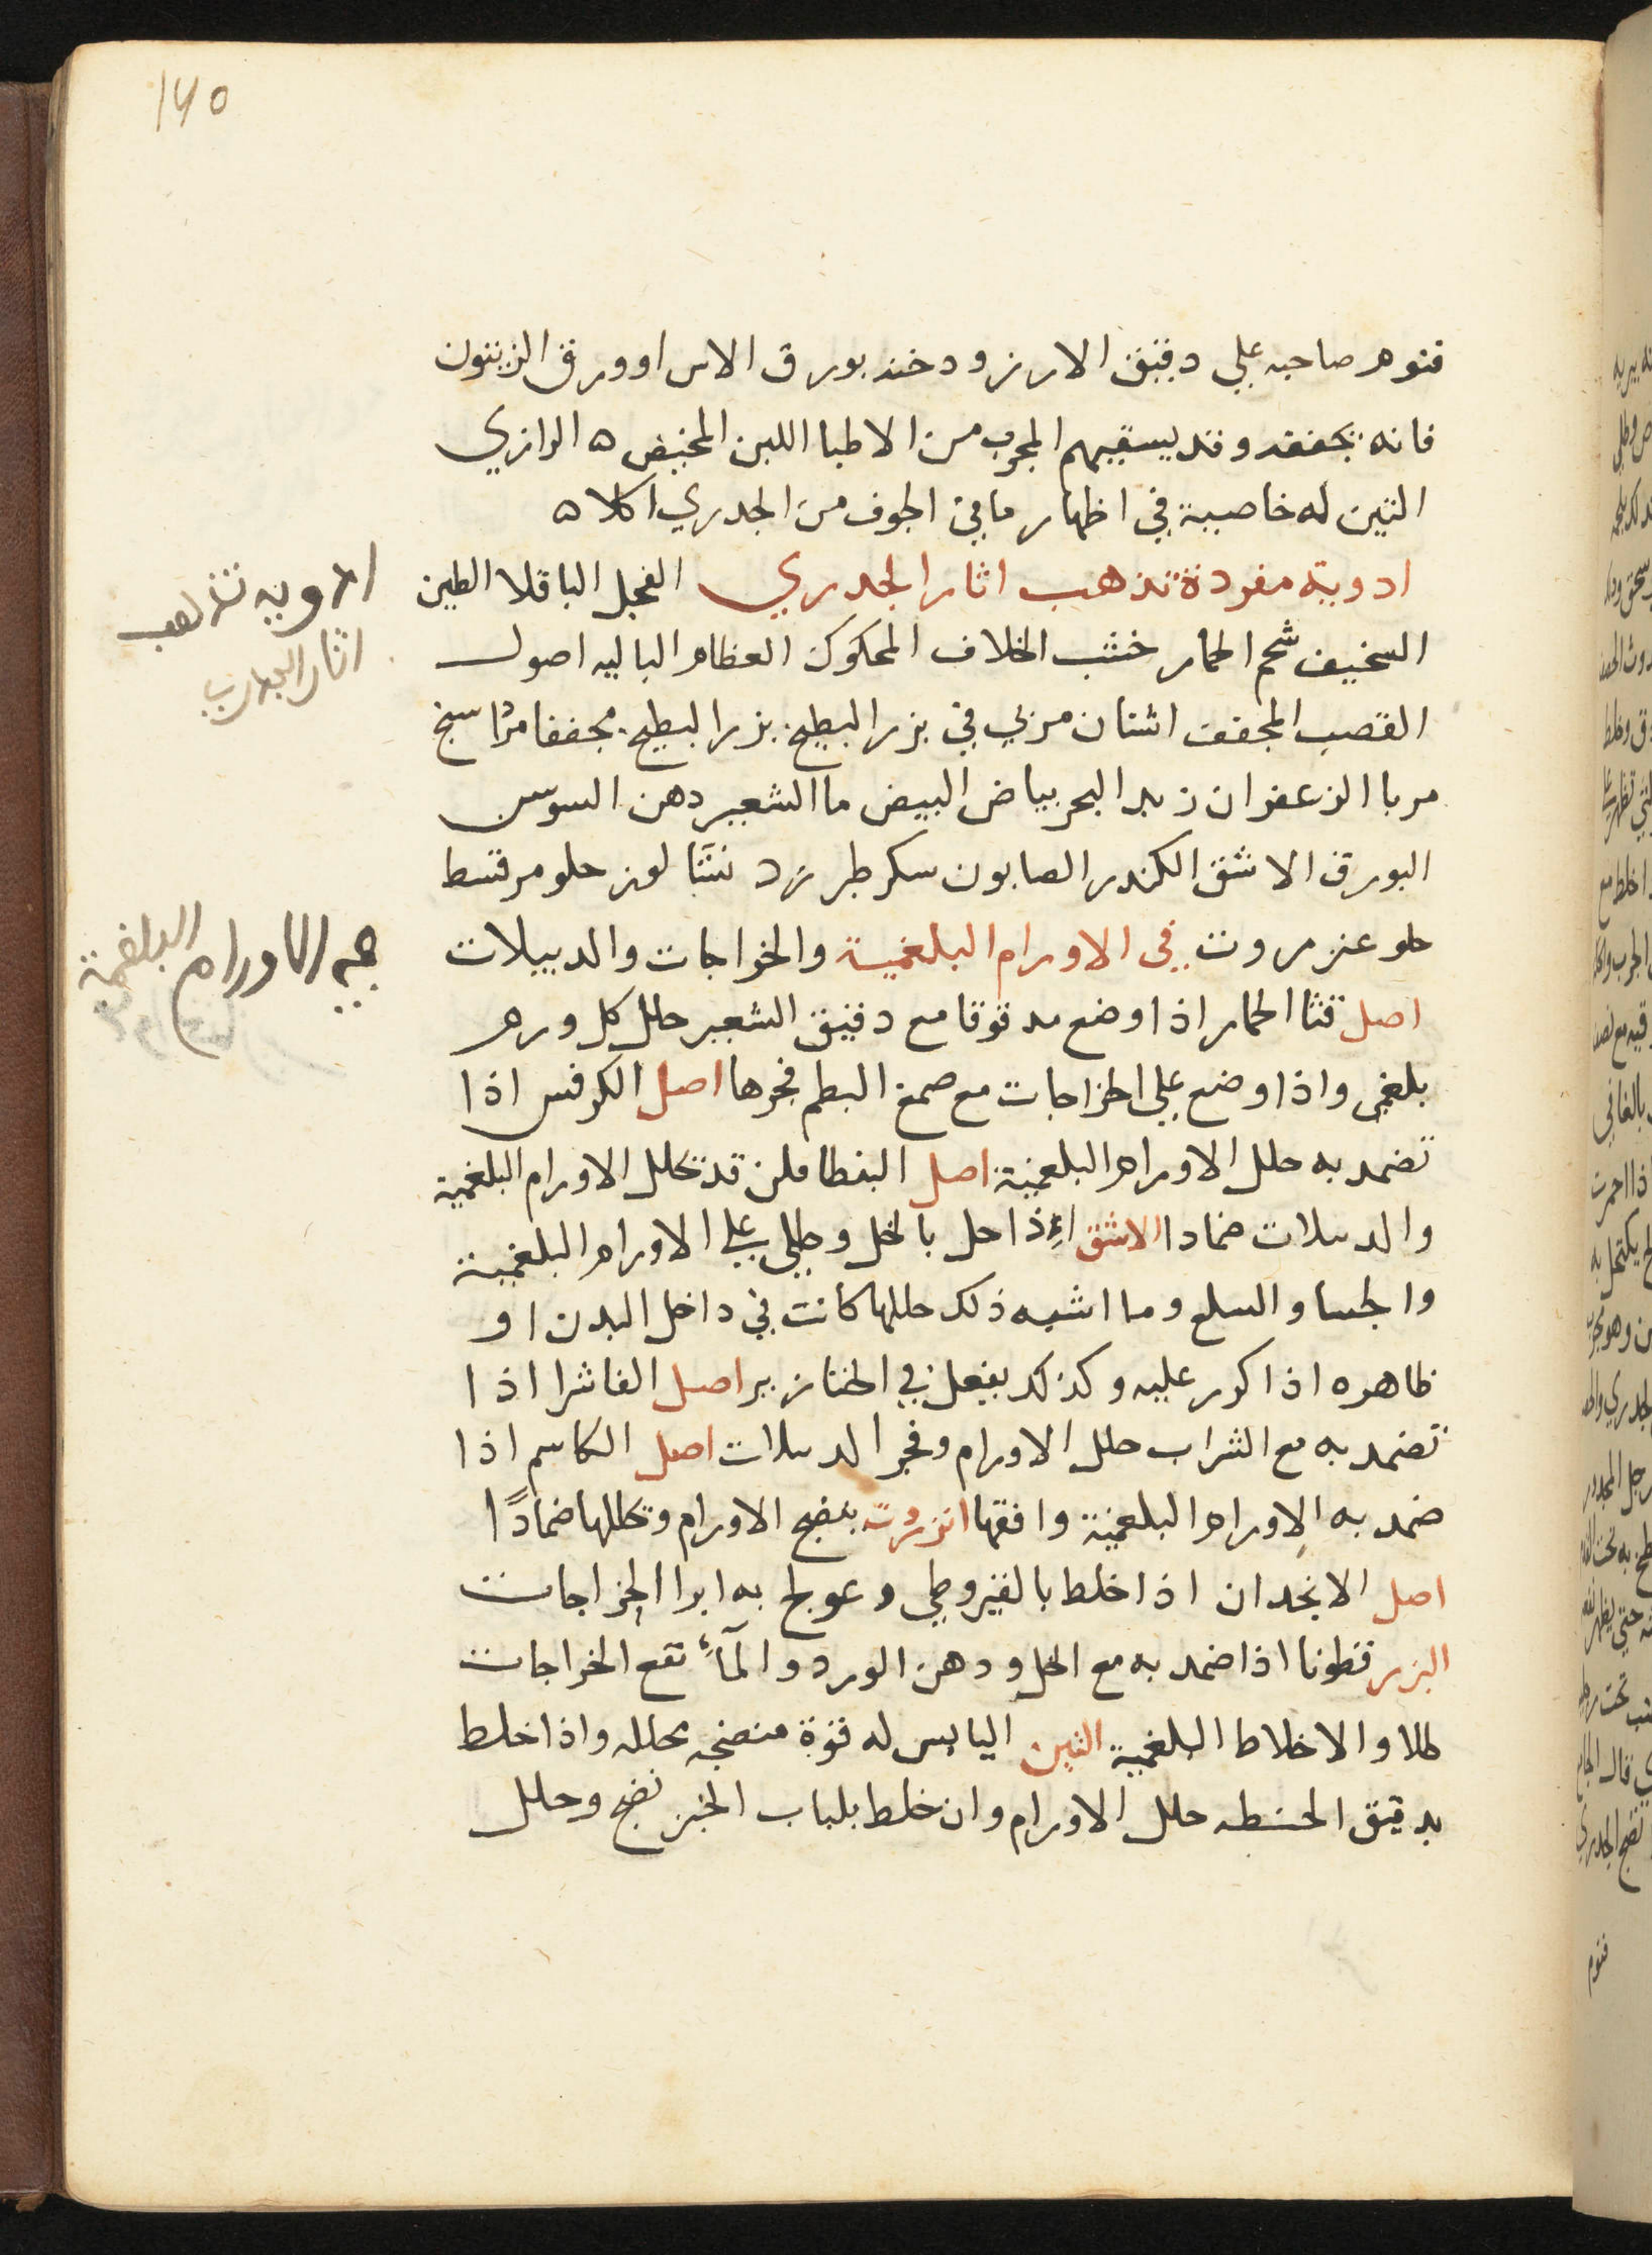 ١٧٥
فنوم صاحبه علي دقيق الارز ودخنه بورق الاس او ورق الزيتون
فانه يجففه وقد يسقيهم المجرب من الاطبا اللبن المخيض ه الرازي
التين له خاصية في اظهار ما في الجوف من الجدري اكلا ه
ادوية مفردة تذهب اثار الجدري الفجل الباقلا الطين
السخيف شحم الحمار خشب الخلاف المحكوك العظام الباليه اصول
القصب المجفف اشنان مربي في بزر البطيخ بزر البطيخ مجففا
مربا الزعفران زبد البحر بياض البيض ما الشعير دهن السوسن
البورق الاشق الكندر الصابون سكر طبرزد نشا لوز حلو مر قسط
حلو عنزروت في الاورام البلغمية والخراجات والدبيلات
اصل قثا الحمار اذا وضع مدقوقا مع دقيق الشعير حلل كل ورم
بلغمي واذا وضع علي الخراجات مع صمغ البطم فجرها اصل الكرفس اذا
تضمد به حلل الاورام البلغمية اصل البنطافلن قد تحلل الاورام البلغمية
والدبيلات ضمادا الاشق إذا حل بالخل وطلي علي الاورام البلغمية
والجسا والسلع وما اشبه ذلك حللها كانت في داخل البدن او
ظاهره اذا كرر عليه وكذلك يفعل في الخنازير اصل الفاشرا اذا
تضمد به مع الشراب حلل الاورام وفجر الدبيلات اصل الكاسم اذا
ضمد به الاورام البلغمية وافقها انزروت ينضج الاورام وتحللها ضمادًا
اصل الانجدان اذا خلط بالقيروطي وعولج به ابرا الخراجات
البزر قطونا اذا ضمد به مع الخل ودهن الورد والمآء نفع الخراجات
طلا والاخلاط البلغمية التين اليابس له قوة منضجه محلله واذا خلط
بدقيق الحنطه حلل الاورام وان خلط بلباب الخبز نضج وحلل
ادويه تذهب
اثار الجدري
الاورام البلغمية